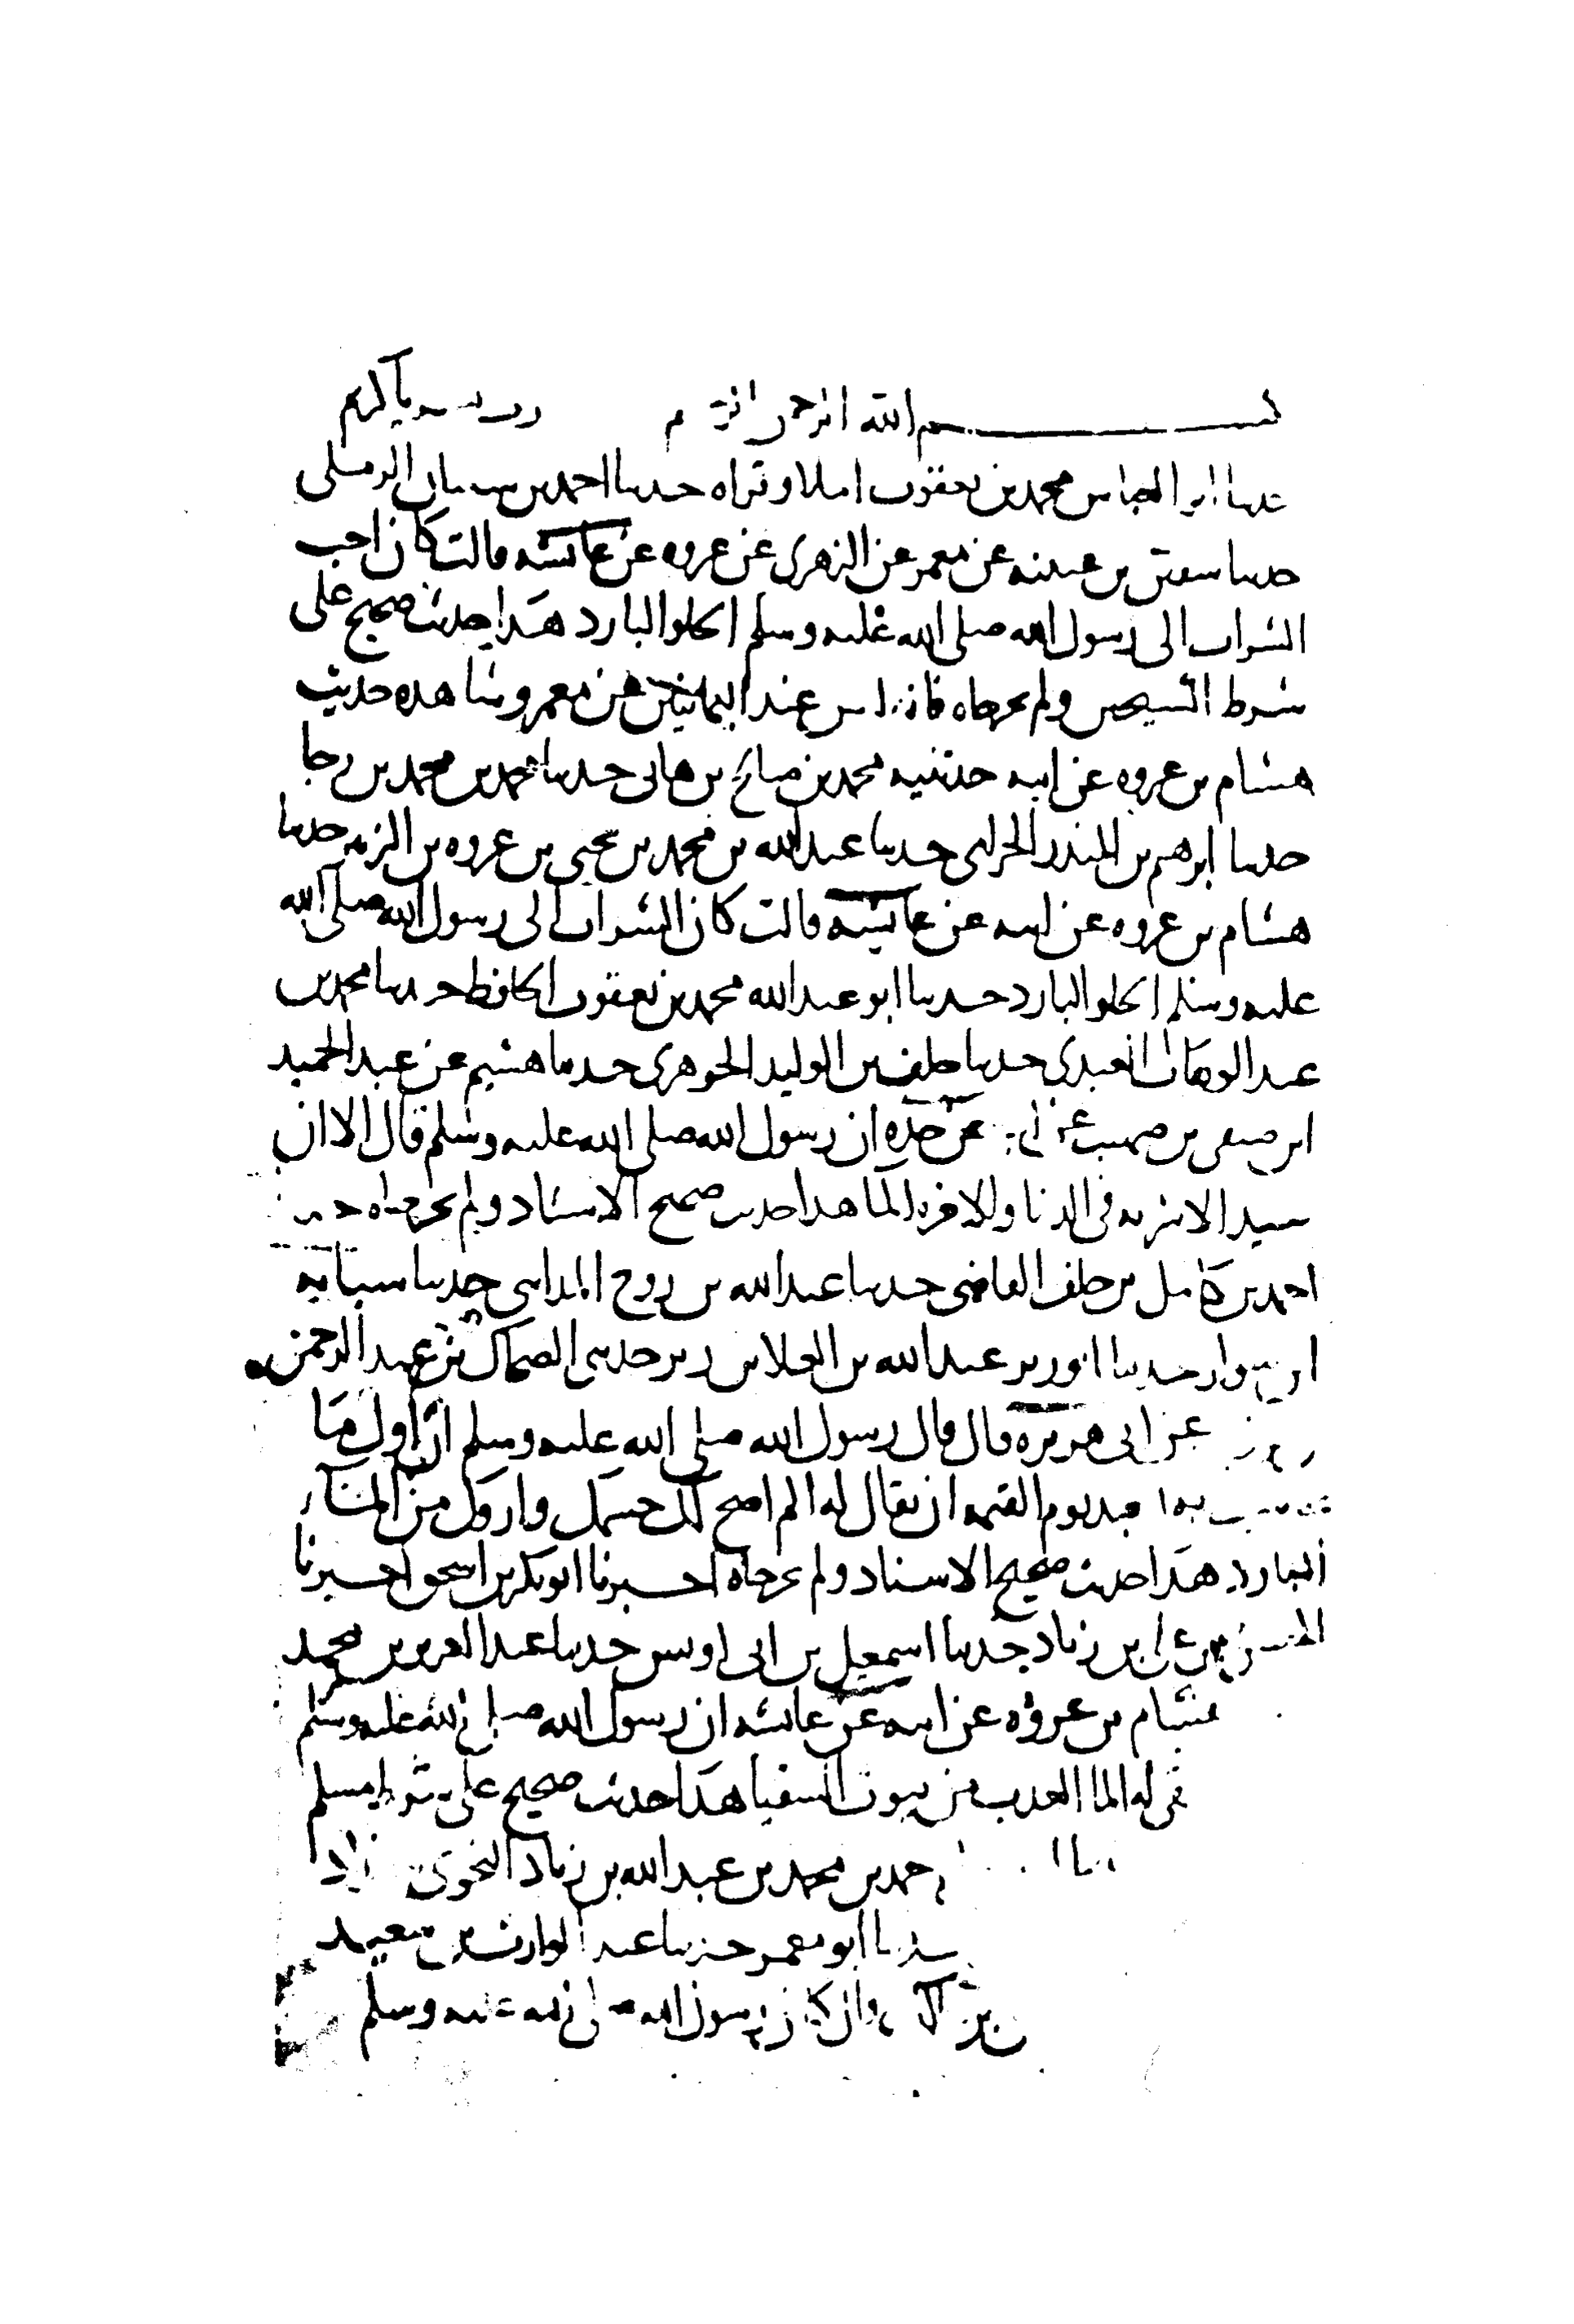 بسم الله الرحمن الرحيم يا كريم
حدثنا ابو العباس محمد بن يعقوب املا وقراه حدثنا احمد بن شيبان الرملى
حدثنا سفين بن عيينه عن معمر عن الزهرى عن عروه عن عائشه قالت كان احب
الشراب الى رسول الله صلى الله عليه وسلم الحلو البارد هذا حديث صحيح على
شرط الشيخين ولم يخرجاه فانه ليس عند اليمانيين عن معمر وشاهده حديث
هشام بن عروه عن ابيه حدثنيه محمد بن صالح بن هانى حدثنا محمد بن محمد بن رجا
حدثنا ابرهيم بن المنذر الحزامى حدثنا عبد الله بن محمد بن يحيى بن عروه بن الزبير حدثنا
هشام بن عروه عن ابيه عن عائشه قالت كان الشراب الى رسول الله صلى الله
عليه وسلم الحلو البارد حدثنا ابو عبد الله محمد بن يعقوب الحافظ حدثنا محمد بن
عبد الوهاب العبدى حدثنا خلف بن الوليد الجوهرى حدثنا هشيم عن عبد الحميد
ابن صيفى بن صهيب عن ابيه عن جده ان رسول الله صلى الله عليه وسلم قال الا ان
سيد الاشربه فى الدنيا والاخره الما هذا حديث صحيح الاسناد ولم يخرجاه حدثنا
احمد بن كامل بن خلف القاضى حدثنا عبد الله بن روح المداينى حدثنا شبابه
ابن سوار حدثنا ابو زبر عبد الله بن العلا بن زبر حدثنى الضحاك بن عبد الرحمن
عن ابى هريره قال قال رسول الله صلى الله عليه وسلم ان اول ما
يحاسب به العبد يوم القيمه ان يقال له الم اصح لك جسمك واروك من الما
البارد هذا حديث صحيح الاسناد ولم يخرجاه اخبرنا ابو بكر بن اسحق اخبرنا
الحسن بن على بن زياد حدثنا اسمعيل بن ابى اويس حدثنا عبد العزيز بن محمد
هشام بن عروه عن ابيه عن عائشه ان رسول الله صلى الله عليه وسلم
له الما العذب من بيوت السقيا هذا حديث صحيح على شرط مسلم
احمد بن محمد بن عبد الله بن زياد النحوى
حدثنا ابو معمر حدثنا عبد الوارث بن سعيد
قال كان رسول الله صلى الله عليه وسلم